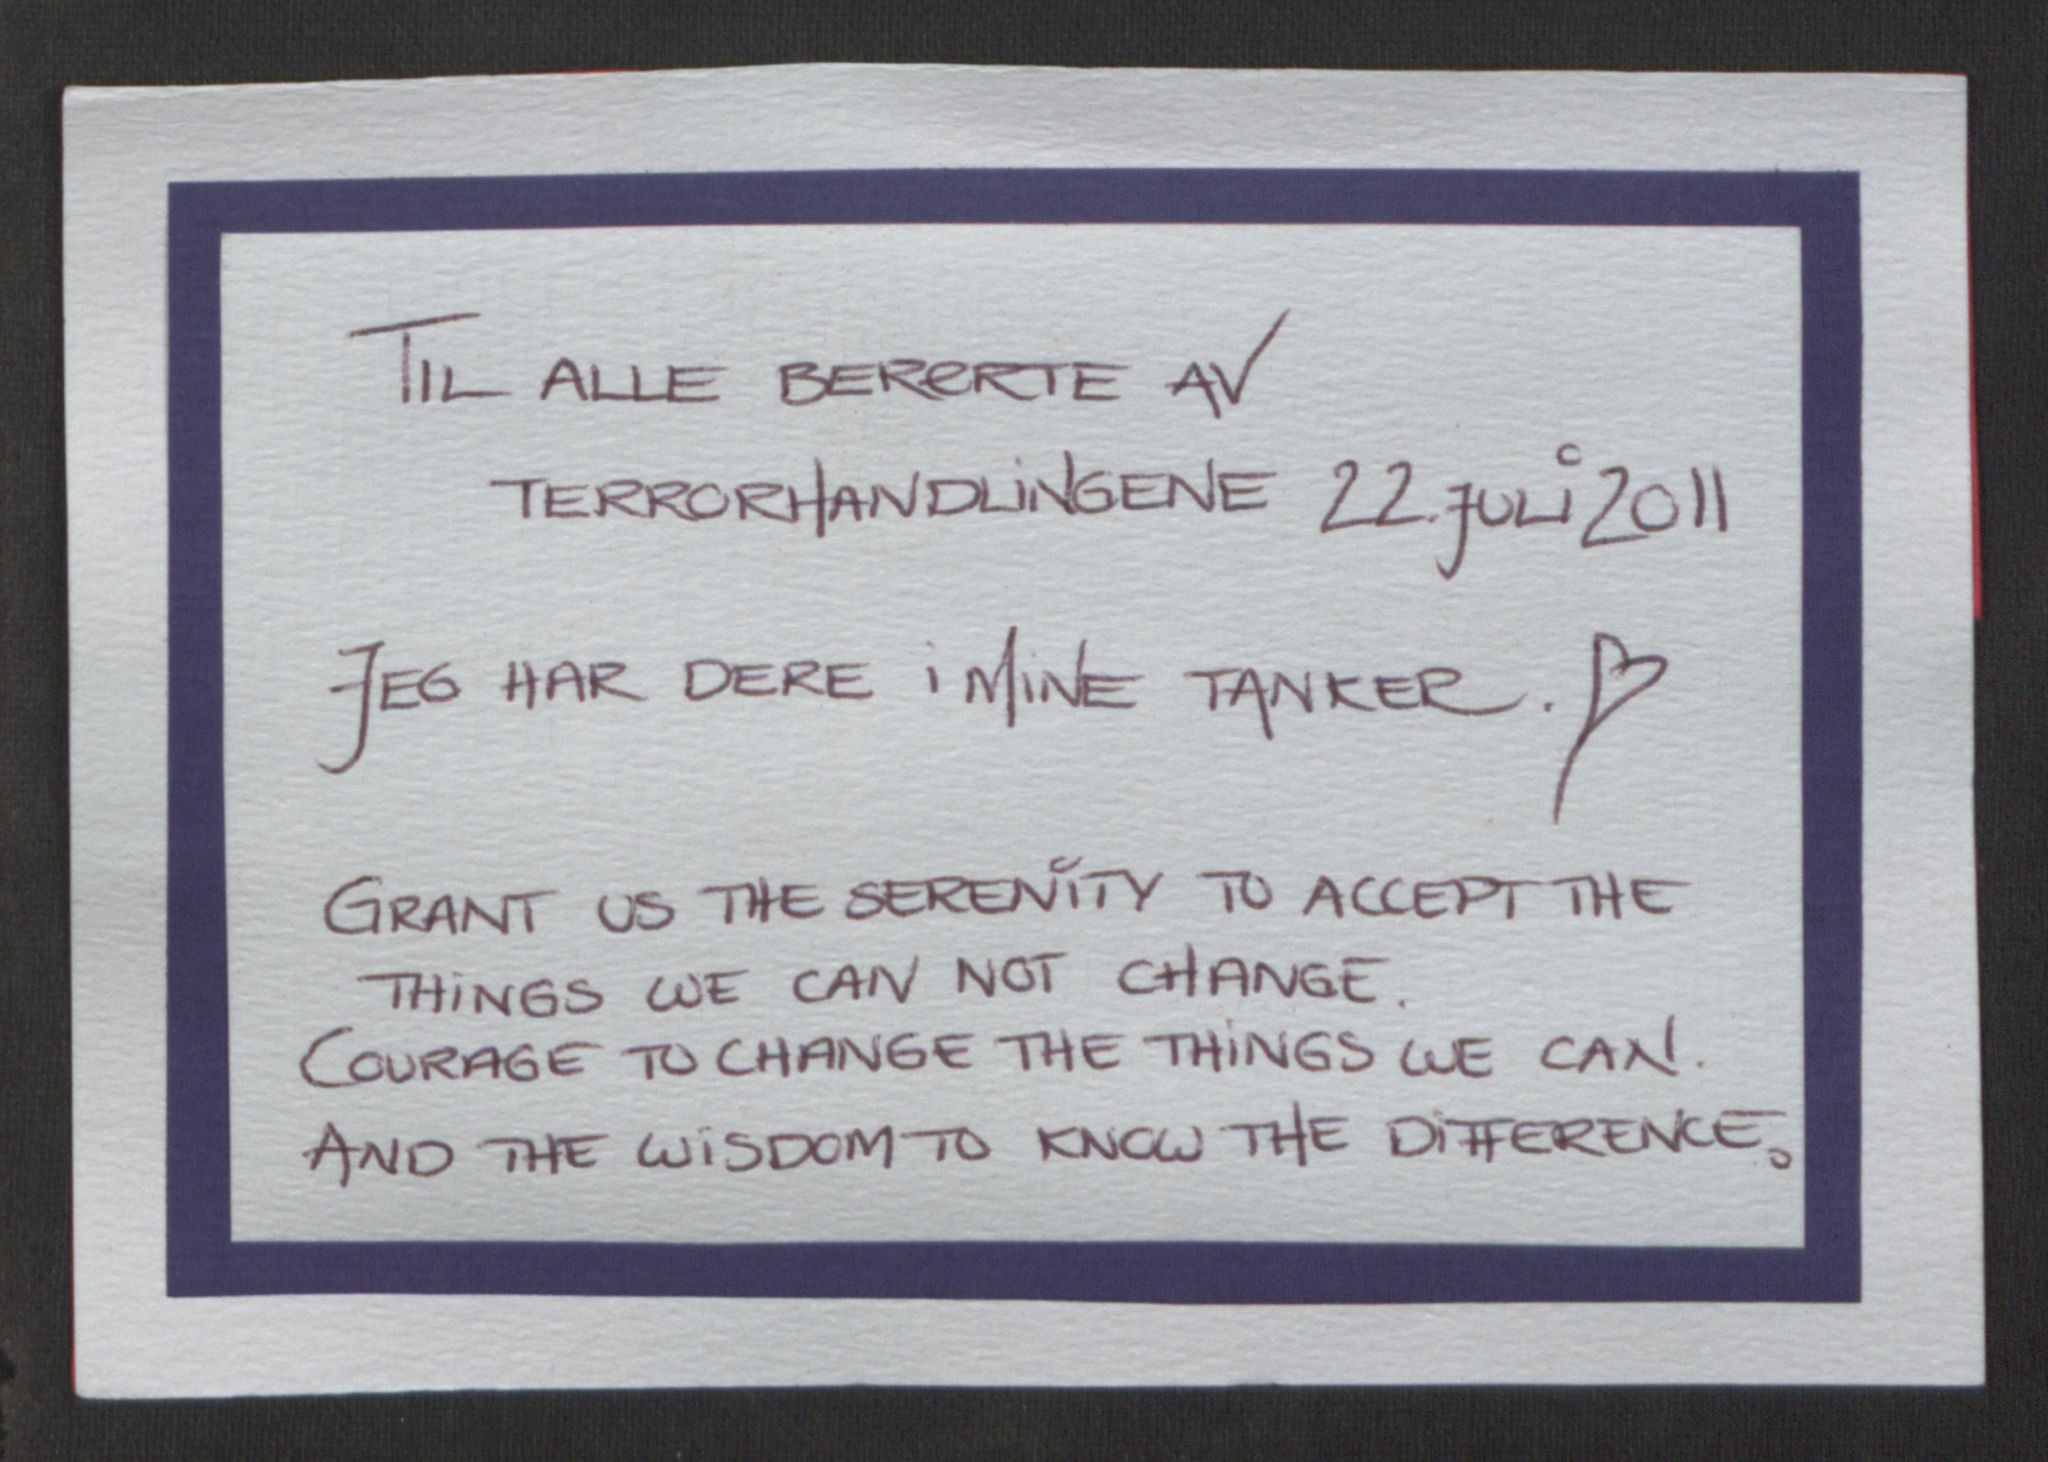 TIL ALLE BERØRTE AV
TERRORHANDLINGENE 22. JULI 2011
JEG HAR DERE i MINE TANKER. ♡
GRANT US THE SERENITY TO ACCEPT THE
THINGS WE CAN NOT CHANGE.
COURAGE TO CHANGE THE THINGS WE CAN.
AND THE WISDOM TO KNOW THE DIFFERENCE.